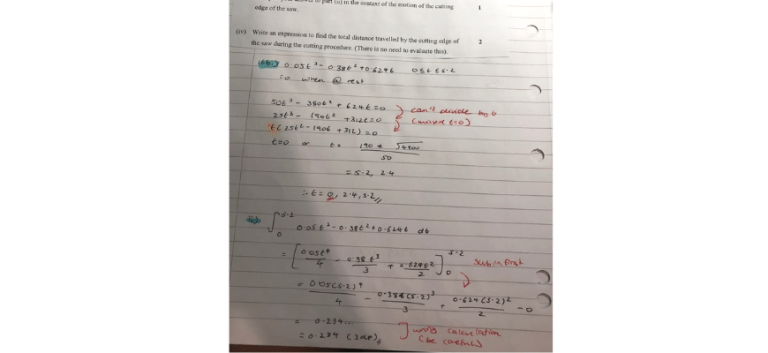 part (ii) in the context of the motion of the cutting 1
edge of the saw.
(iv) Write an expression to find the total distance travelled by the cutting edge of 2
the saw during the cutting procedure. (There is no need to evaluate this).
0.05t³ - 0.38t² + 0.624t 0≤t≤5.2
when @ rest
50t³ - 380t² + 624t = 0 can't divide by t
25t³ - 190t² + 312t = 0 (missed t=0)
t(25t² - 190t + 312) = 0
t=0 or t = 190 ±
50
= 5.2, 2.4
∴ t = 0, 2.4, 5.2
∫ 5.2 0 0.05t³ - 0.38t² + 0.624t dt
= [ 0.05t⁴ / 4 - 0.38t³ / 3 + 0.624t² / 2 ] 5.2 0 sub in first
= 0.05(5.2)⁴ / 4 - 0.38(5.2)³ / 3 + 0.624(5.2)² / 2 - 0
= 0.234... calculation
= 0.234 (3dp) (be careful)